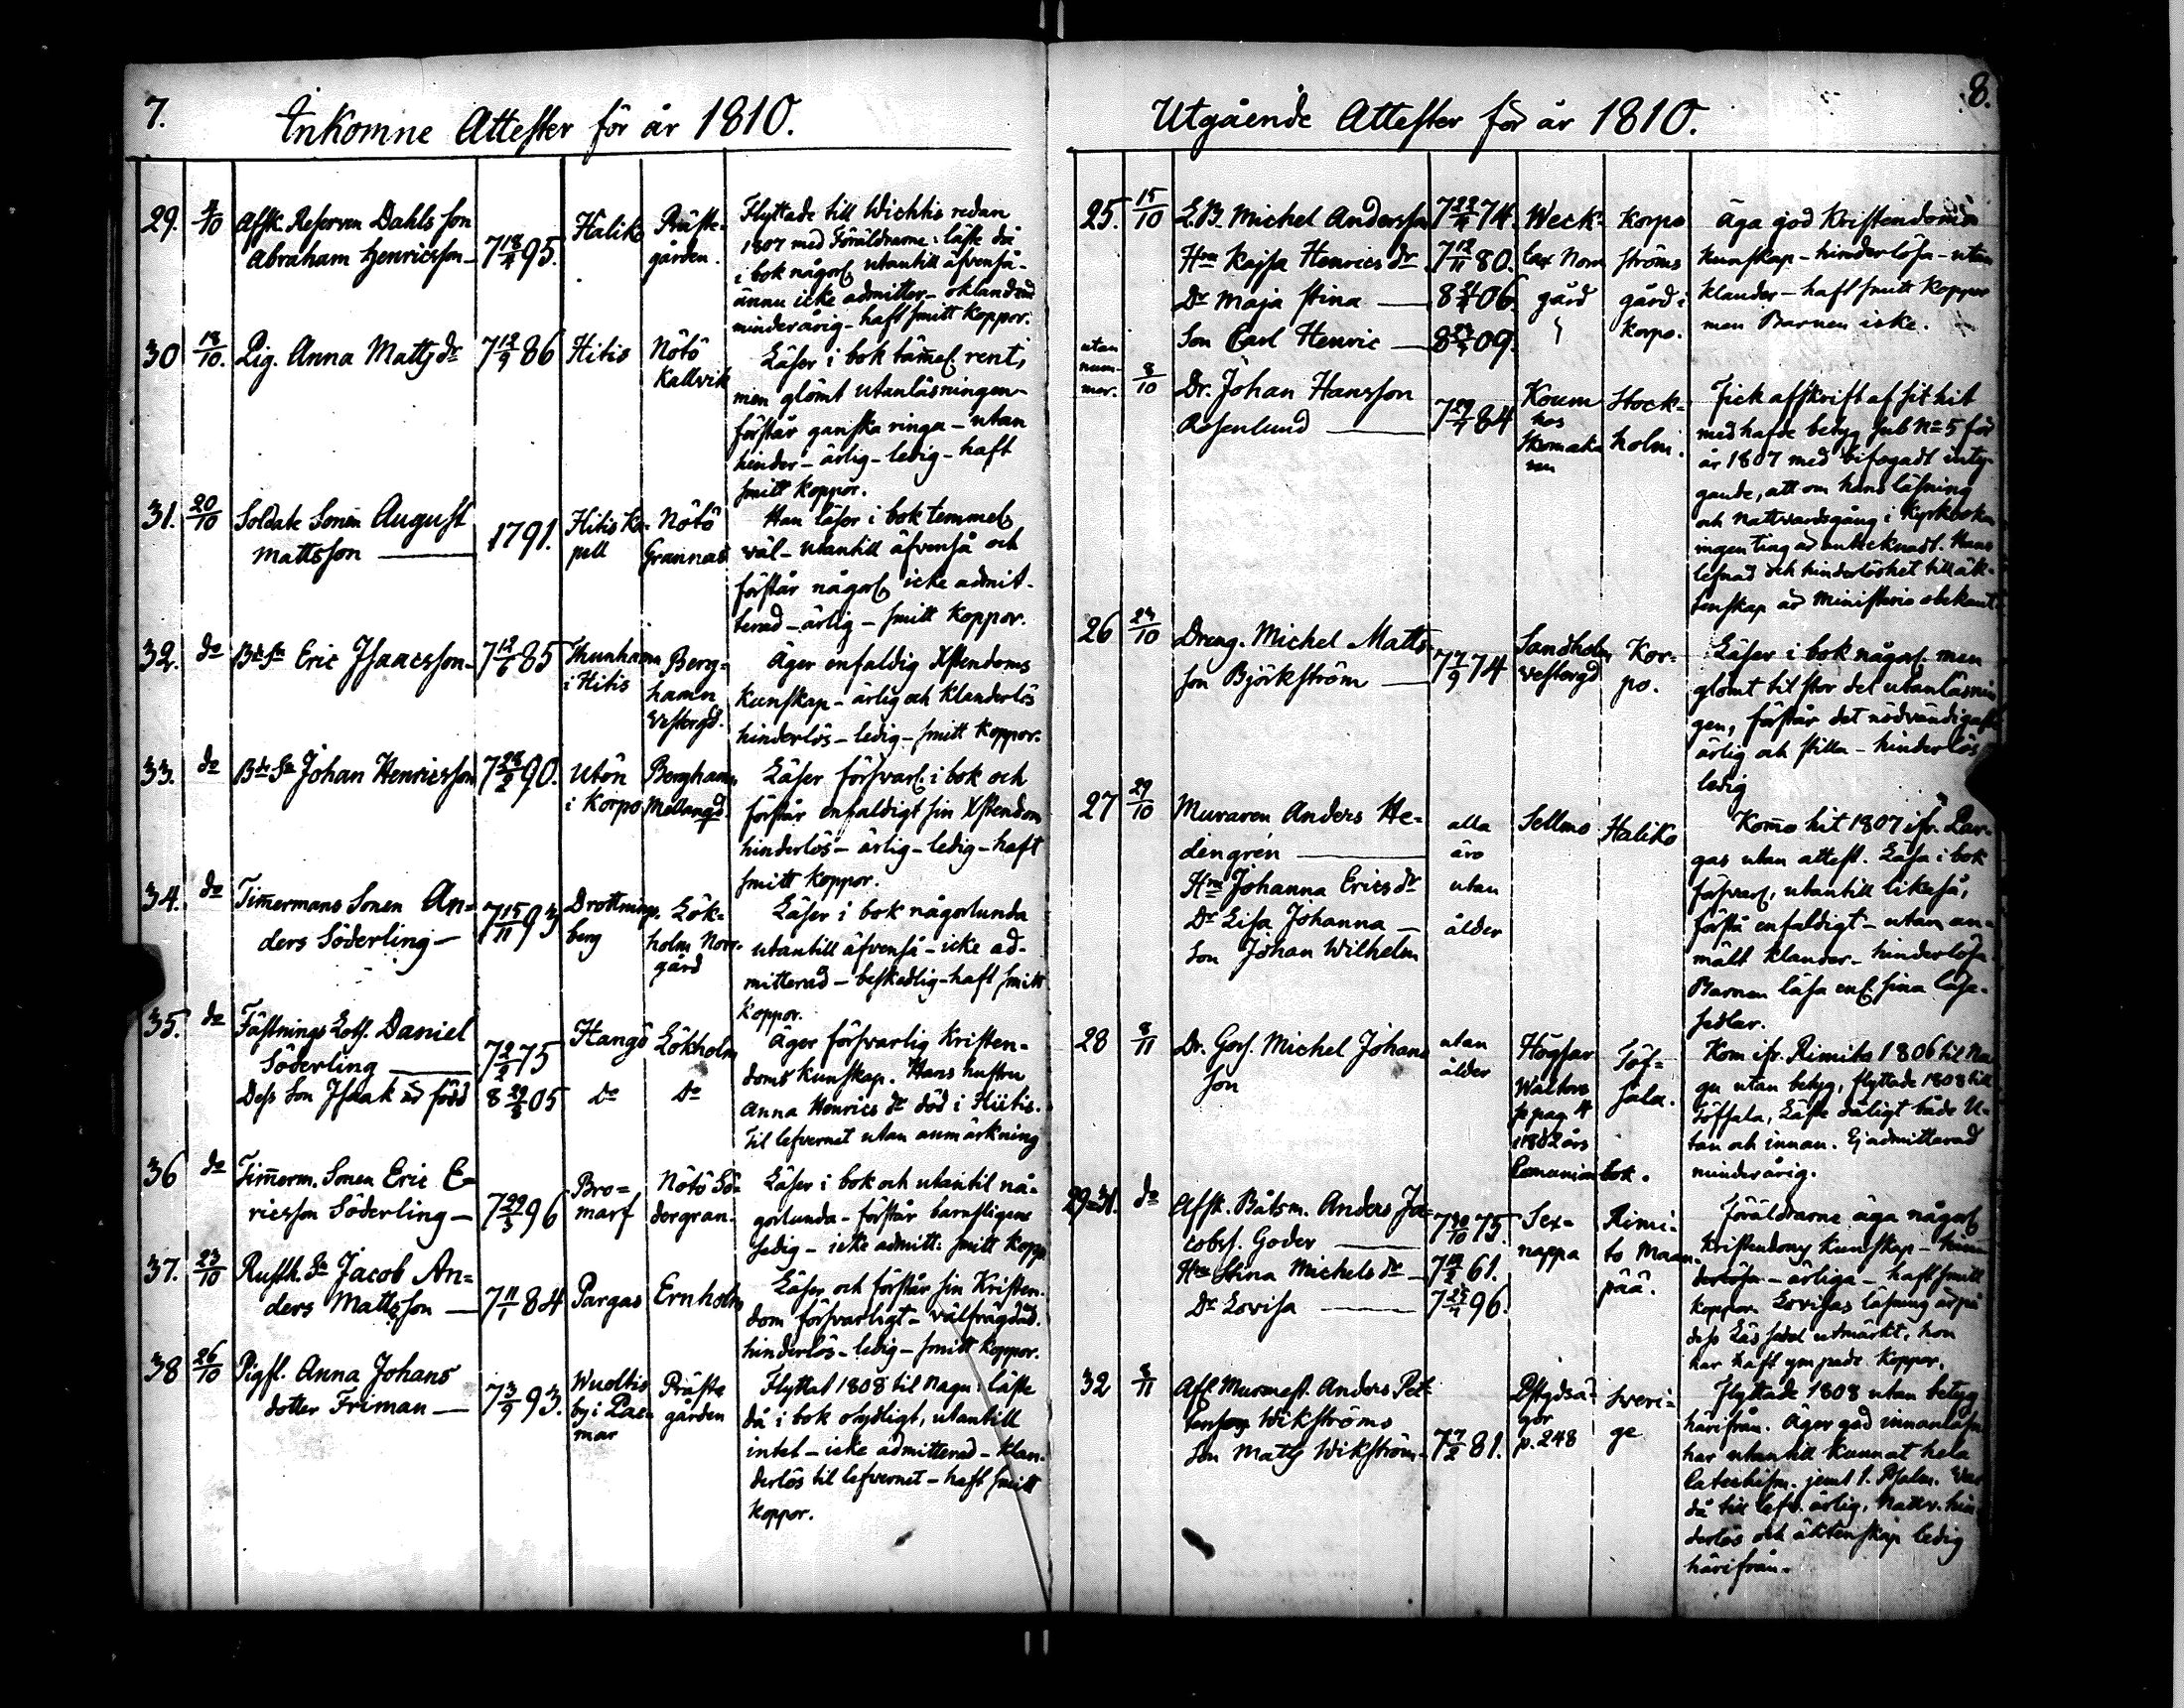 7.
Inkomne Attester för år 1810.
29. 4/10 Afsk. Reserven Dahls son Haliko Präste-
Abraham Henricsson 7 18/4 95. gården.
Flyttade till Wichtis redan
1807 med Föräldrarne: läste då
i bok någorl. utantill äfvenså-
ännu icke admitter- oklandrad
minderårig- haft smitt koppor.
30 18/10. Pig. Anna Matts dr 7 12/9 86 Hitis Nötö
Kallvik
Läser i bok täml. rent,
men glömt utanläsningen-
förstår ganska ringa - utan
hinder - ärlig - ledig - haft
smitt koppor.
31. 20/10 Soldate Sonen August Hitis Ka- Nötö
Mattsson 1791. pell Grannas
Han läser i bok temmel.
väl - utantill äfvenså och
förstår någorl. icke admit-
terad - ärlig - smitt koppor.
32. do Bde Sn Eric Isaacsson 7 12/6 85 Thunhamn Berg-
i Hitis hamn
Vestergd.
Äger enfaldig Xstendoms
kunskap - ärlig och klanderlös
hinderlös - ledig - smitt koppor.
33. do Bde Sn Johan Henricsson 7 28/2 90. Utön Berghamn
i Korpo Mellangd.
Läser försvarl. i bok och
förstår enfaldigt sin Xstendom
hinderlös - ärlig - ledig - haft
smitt koppor.
34. do Timmermans Sonen An- Drottnings- Lök-
ders Söderling 7 15/11 93 berg holm Norr-
gård
Läser i bok någorlunda
utantill äfvenså - icke ad-
mitterad - beskedlig - haft smitt
koppor.
35. do Fästnings Lots. Daniel Hangö Lökholm
Söderling 7 2/2 75
Dess Son Isaak född 8 29/8 05 do do
Äger försvarlig kristen-
doms kunskap. Hans hustru
Anna Henrics dr död i Hitis.
Til lefvernet utan anmärkning
36 do Timmerm. Sonen Eric E- Bro- Nötö Sö-
ricsson Söderling 7 29/3 96 marf dergran.
Läser i bok och utantil nå-
gorlunda - förstår barnsligen
sedig - icke admitt: smitt kopp.
37. 23/10 Rusth. Sn Jacob An-
ders Mattsson 7 11/1 84 Pargas Ernholm
Läser och förstår sin Kristen-
dom försvarligt - välfrägdad.
hinderlös - ledig - smitt koppor.
38 26/10 Pigfl. Anna Johans Wuoltis Präste
dotter Friman 7 3/9 93. by i Pae- gården
mar
Flyttat 1808 til Nagu: läste
då i bok otydligt, utantill
intet - icke admitterad - klan-
derlös til lefvernet - haft smitt
koppor.
8.
Utgående Attester för år 1810.
25. 15/10 L.B. Michel Andersson 7 22/9 74. Weck- Korpo
Hm Kajsa Henrics dr 7 12/11 80. lax Norr ströms
Dr Maja Stina 8 21/4 06 gård gård i
Son Carl Henric 8 23/7 09. Korpo.
Äga god Kristendoms
kunskap - hinderlösa - utan
klander - haft smitt koppor
men Barnen icke.
utan
num-
mer. 8/10 Dr. Johan Hansson Koum Stock-
Rosenlund 7 29/7 84 hos holm.
Skomaka
ren
Fick afskrift af sit hit
medhafde betyg sub No 5 för
år 1807 med bifogadt inty-
gande, att om hans läsning
och nattvardsgång i Kyrkboken
ingenting är antecknadt. Hans
lefnad och hinderlöshet till äk-
tenskap är Ministerio obekant.
26 24/10 Dreng. Michel Matts- Sandholm Kor-
son Björkström 7 7/9 74 vestergd po.
Läser i bok någorl. men
glömt til stor del utanläsnin
gen, förstår det nödvändigast
ärlig och stilla - hinderlös
ledig
27 29/10 Muraren Anders He- alla Sellmo Haliko
dengren äro
Hm Johanna Erics dr utan
Dr Lisa Johanna ålder
Son Johan Wilhelm
Kommo hit 1807 ifr. Par-
gas utan attest. Läsa i bok
försvarl. utantill likeså,
förstå enfaldigt - utan an-
mält klander - hinderlösa.
Barnen läsa enl. sina läse-
sedlar.
28 8/11 Dr. Gos. Michel Johans utan Högsar Töf-
son ålder Waltors sala.
pag. 4
1802 års
Comunion bok.
Kom ifr. Rimito 1806 til Na
gu utan betyg, flyttade 1808 till
Töfsala, Läste dåligt både U-
tan och innan. Ej admitterad
minderårig.
29-31. do Afsk. Båtsm. Anders Ja-
cobss. Goder 7 30/10 75. Sex- Rimi-
Hm Stina Michels dr 7 12/2 61. nappa to Maan-
Dr Lovisa 7 25/4 96. pää.
Föräldrarne äga någorl.
kristendoms kunskap - hin-
derlösa - ärliga - haft smitt
koppor. Lovisas läsning är på
dess Läs sedel utmärkt, hon
har haft ympade koppor.
32 8/11 Afl. Murmest. Anders Pet- Dstgdsä- Sveri-
tersson Wikströms gor ge
Son Matts Wikström 7 7/2 81. p. 248
Flyttade 1808 utan betyg
härifrån. Äger god innanläsn
har utantill kunnat hela
Catechism. jemt 1. Psalm. Var
då till lefv. ärlig, Nattv. hin-
derlös och äktenskap ledig
härifrån.